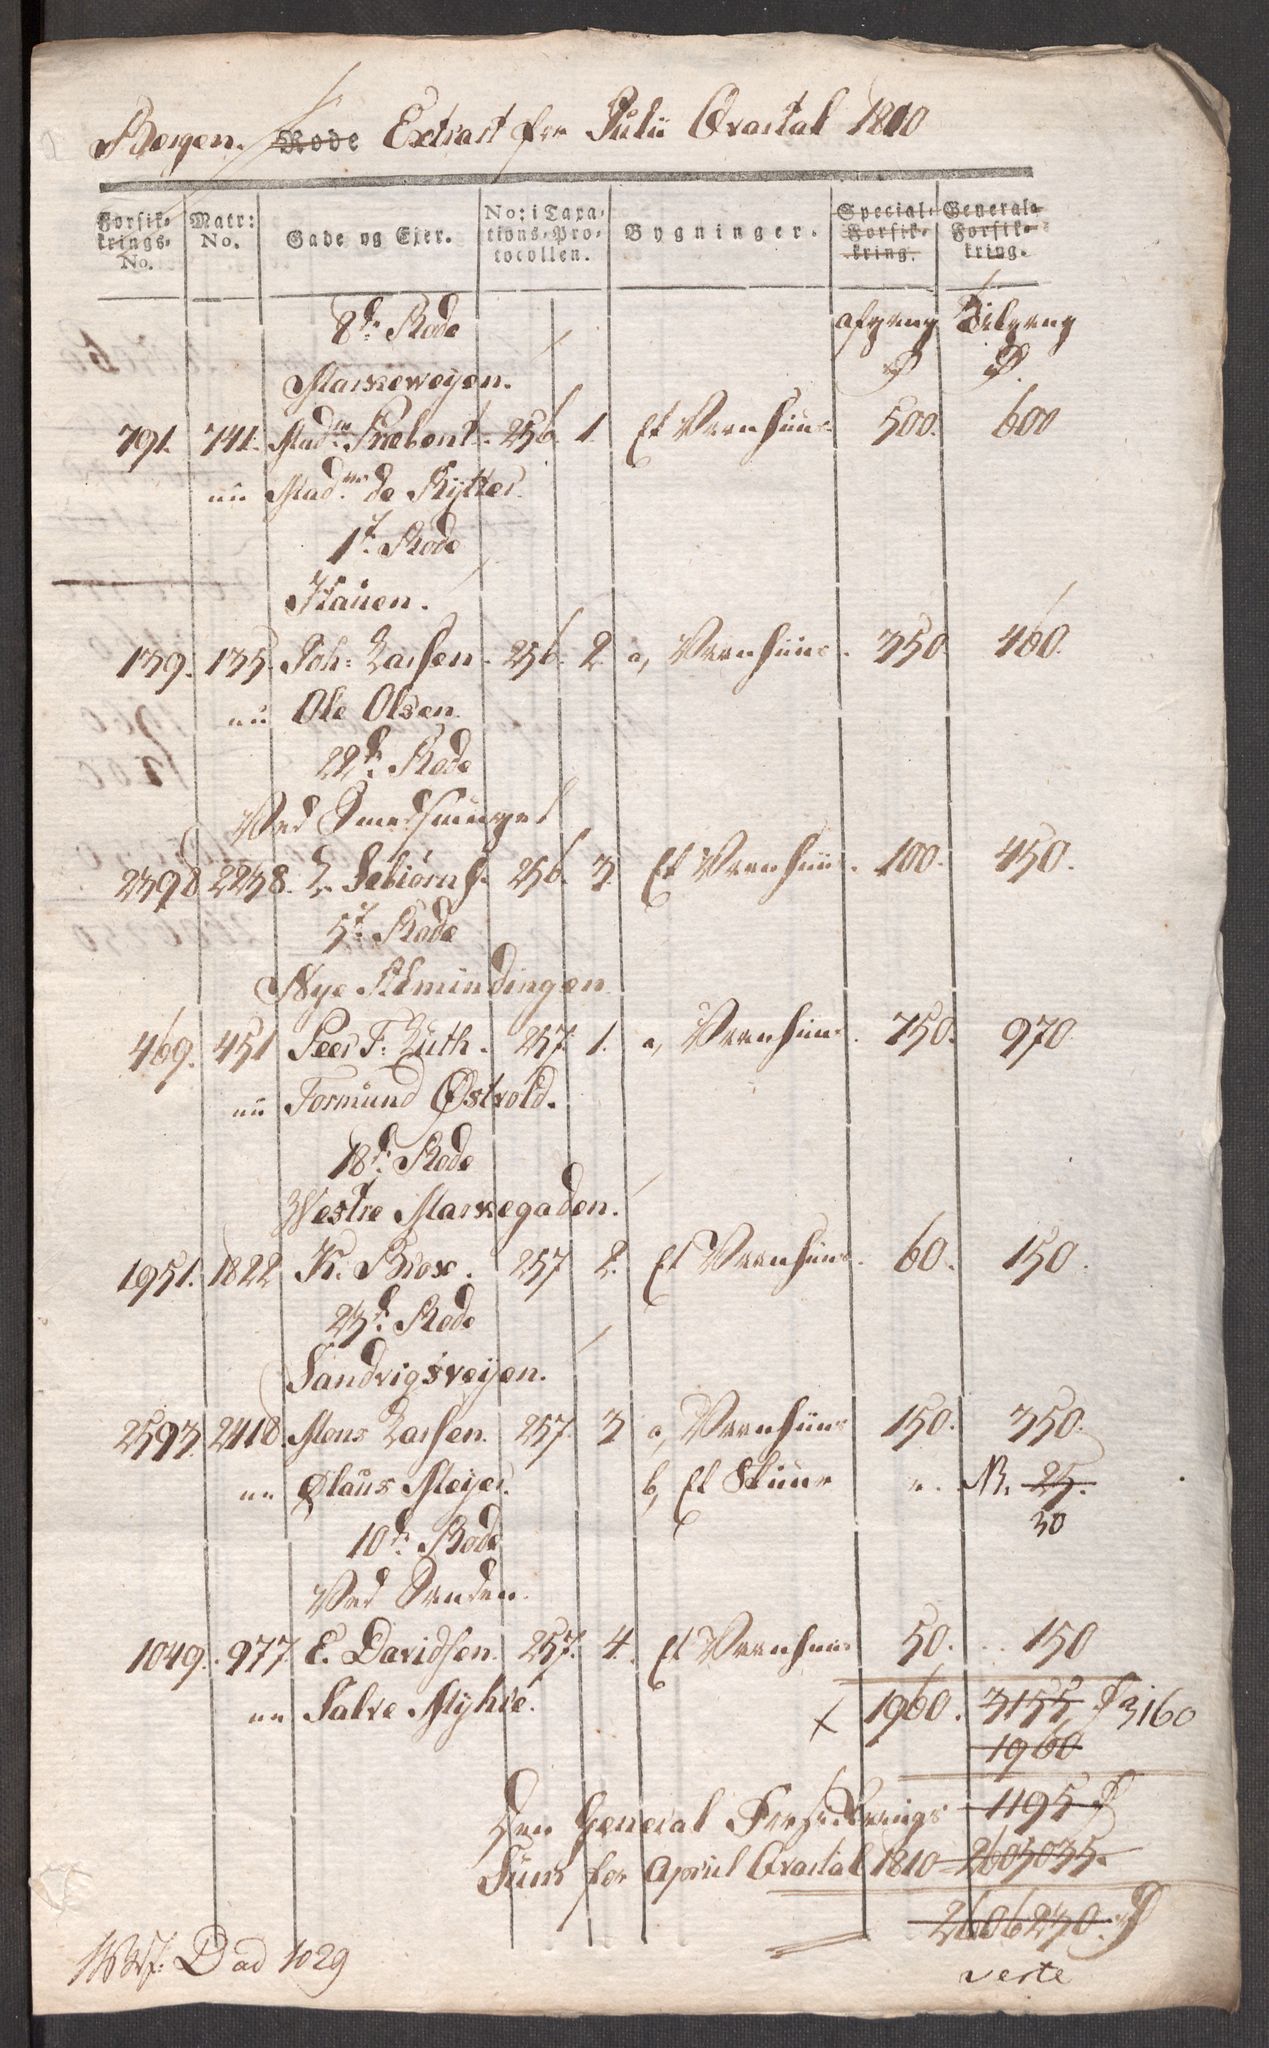 Bergen. Rode Extract for Julii Qvartal 1810
Forsik- krings- No. | Matr: No. | Gade og Ejer. | No: i Taxa- tions-Pro- tocollen. | Bygninger. | Special- Forsik- kring. | General- Forsik- kring.
8de Rode afgang Tilgang
Markeveyen.
791. 741. Madme Præbent. 256. 1. Et Vaanhuus 500. 600
nu Madme de Rytter.
1t Rode
Hauen.
139. 135. Joh: Larsen. 256. 2 a, Vaanhuus. 350. 460.
nu Ole Olsen.
22de Rode
Ved Smedsmuget
2398 2238. L. Sebiørns. 256. 3. Et Vaanhuus. 100. 450.
5t Rode
Nye Almindingen
469. 451 Peer F. Luth. 257. 1. a, Vaanhuus. 750. 970.
nu Tormund Østvold.
18de Rode
Westre Markegaden.
1951. 1822 K. Brox. 257 2. Et Vaanhuus. 60. 150.
23de Rode
Sandvigsveyen.
2593. 2418. Mons Larsen. 257. 3 a, Vaanhuus 150. 350.
nu Olaus Meyer. b, Et Skuur ". N. 25.
30
10de Rode
Ved Sanden.
1049. 977 E. Davidsen. 257. 4. Et Vaanhuus 50. 150
nu Salve Myhre. 1960. 3155 3160
1960
Den General Forsikrings 1195
Sum for April Qvartal 1810 2605035.
2606230.
verte